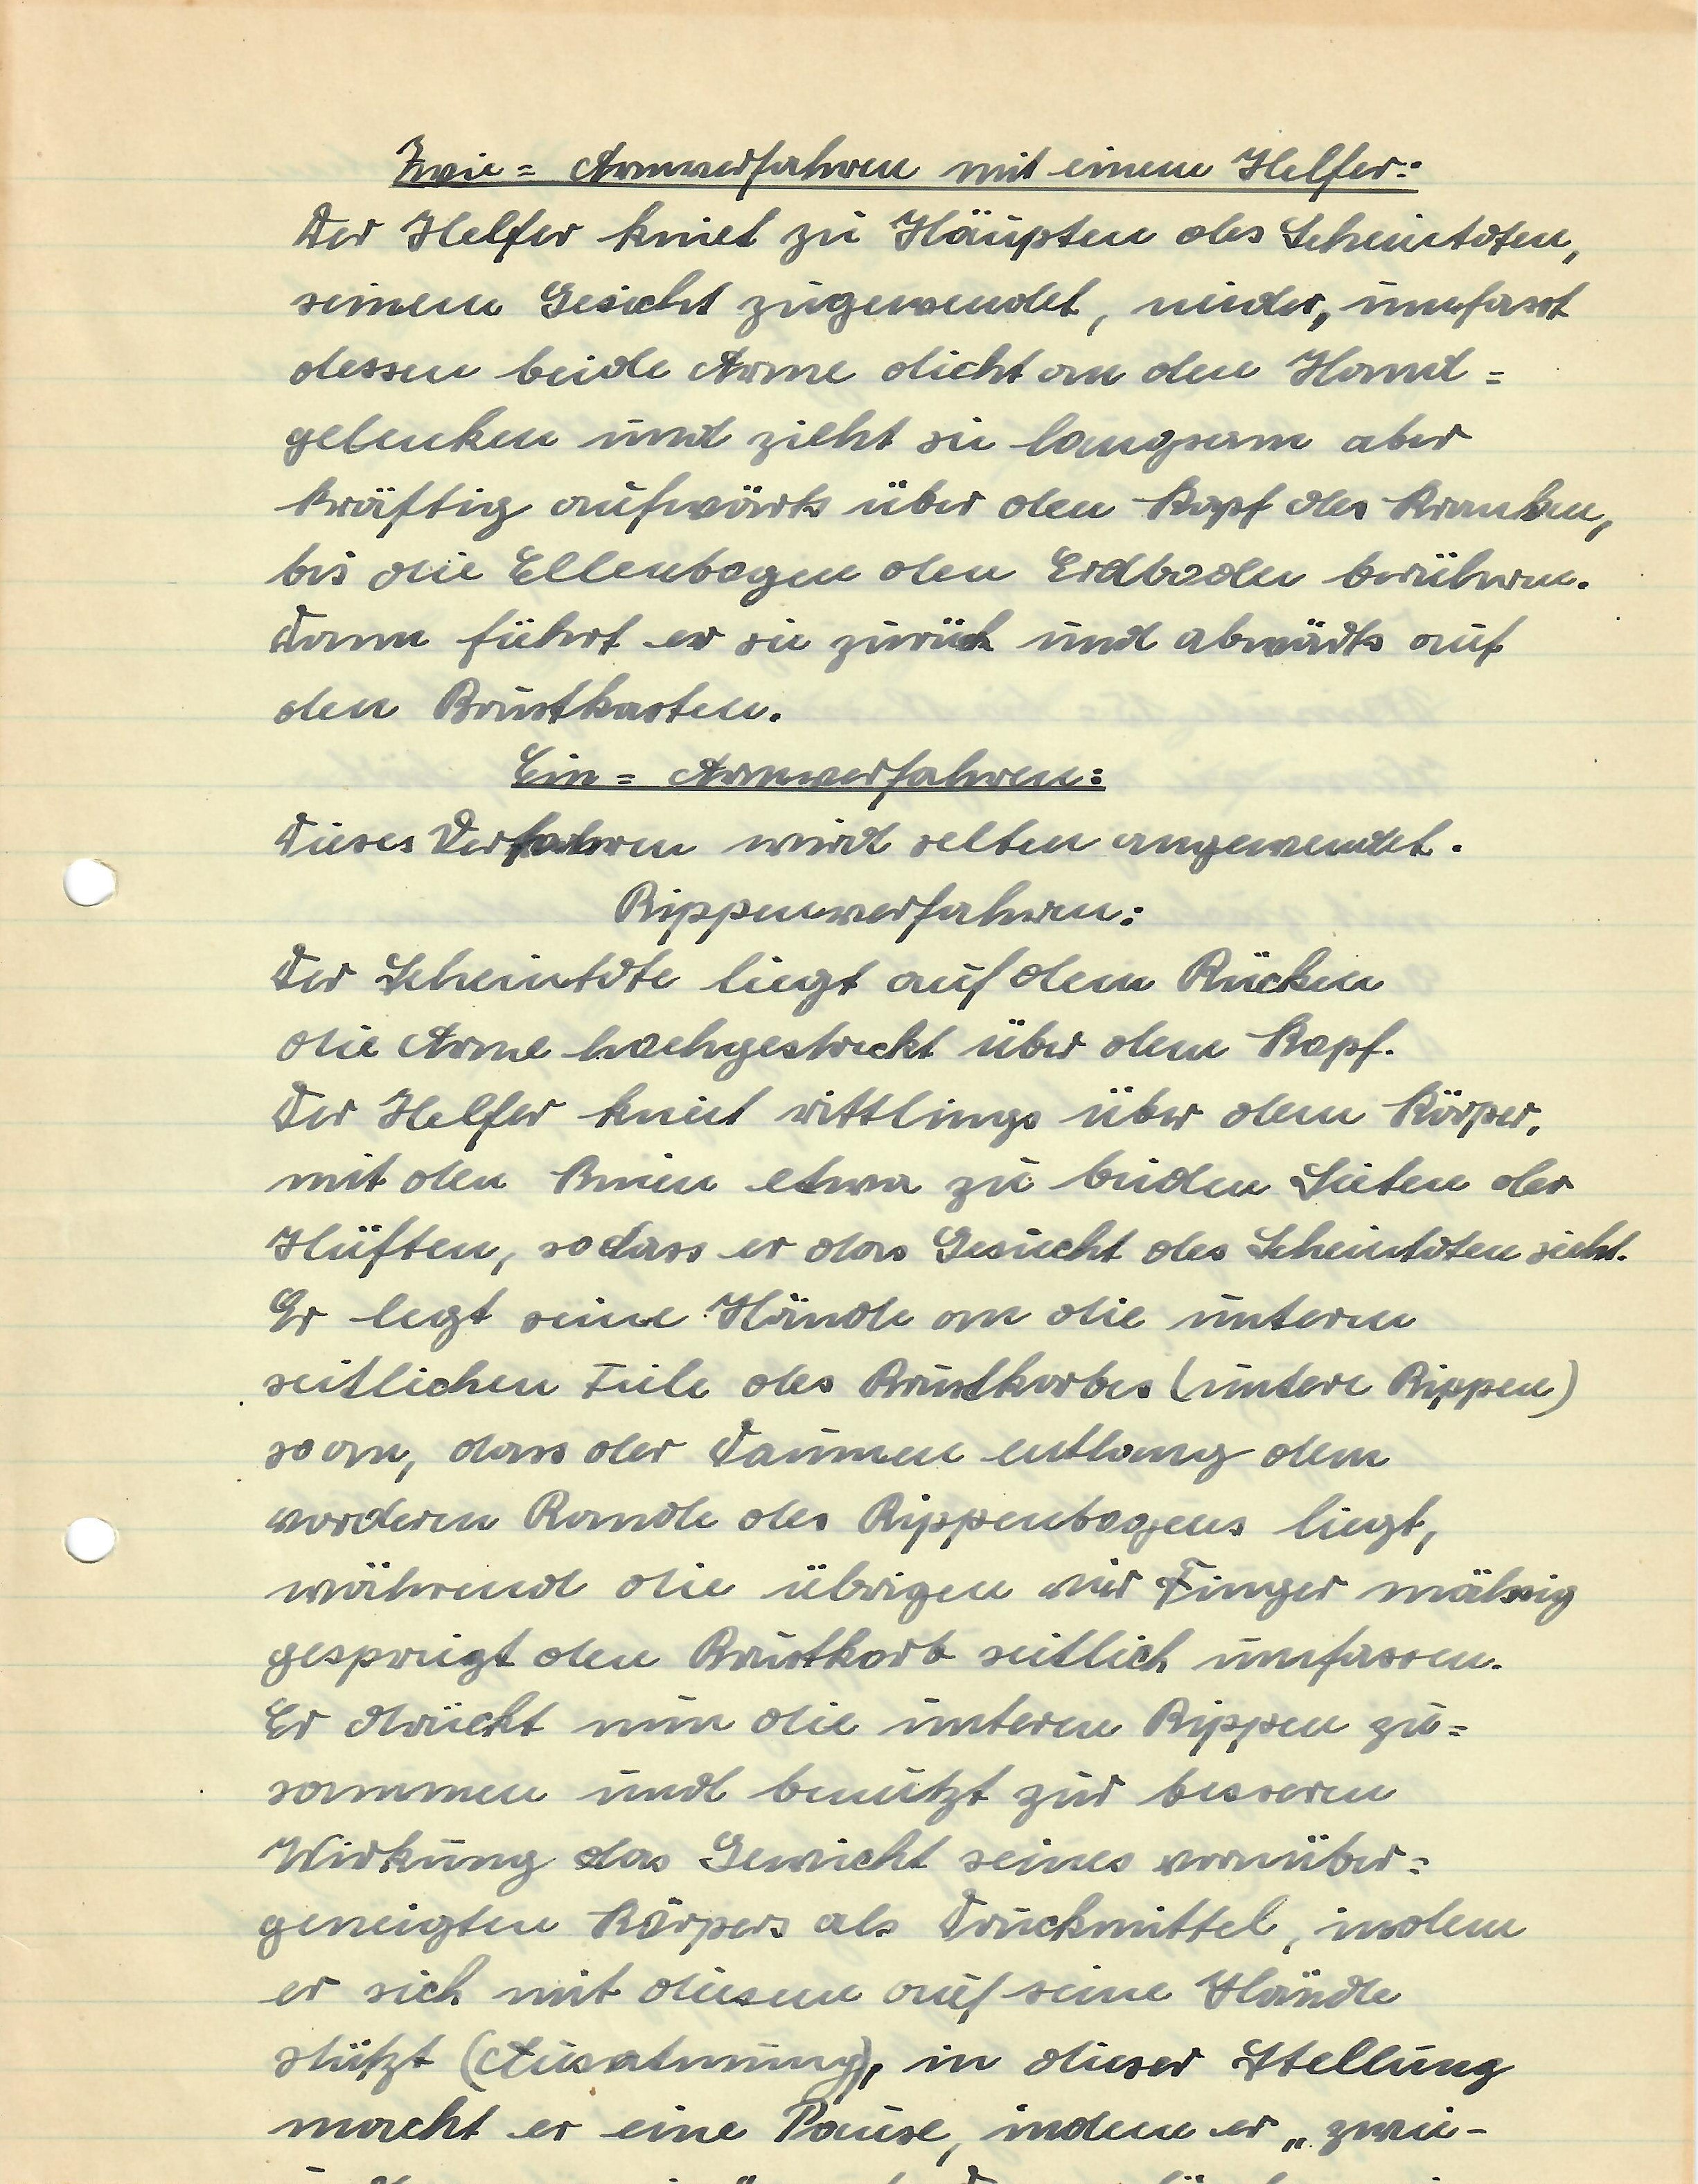 Zwei= Armverfahren mit einem Helfer:
Der Helfer kniet zu Häupten des Scheintoten,
seinem Gesicht zugewendet, nieder, umfasst
dessen beide Arme dicht an den Hand=
gelenken und zieht sie langsam aber
kräftig aufwärts über den Kopf des Kranken,
bis die Ellenbogen den Erdboden berühren.
Dann führt er sie zurück und abwärts auf
den Brustkasten.
Ein= Armverfahren:
Dieses Verfahren wird selten angewendet.
Rippenverfahren:
Der Scheintote liegt auf dem Rücken
die Arme hochgestreckt über dem Kopf.
Der Helfer kniet rittlings über dem Körper,
mit den Knien etwa zu beiden Seiten der
Hüften, sodass er das Gesicht des Scheintoten sieht.
Er legt seine Hände an die unteren
seitlichen Teile des Brustkorbes (untere Rippen)
so an, dass der Daumen entlang dem
vorderen Rande des Rippenbogens liegt,
während die übrigen vier Finger mäßig
gespreizt den Brustkorb seitlich umfassen.
Er drückt nun die unteren Rippen zu=
sammen und benützt zur besseren
Wirkung das Gewicht seines vornüber=
geneigten Körpers als Druckmittel, indem
er sich mit diesem auf seine Hände
stützt (Ausatmung), in dieser Stellung
macht er eine Pause, indem er „zwei-